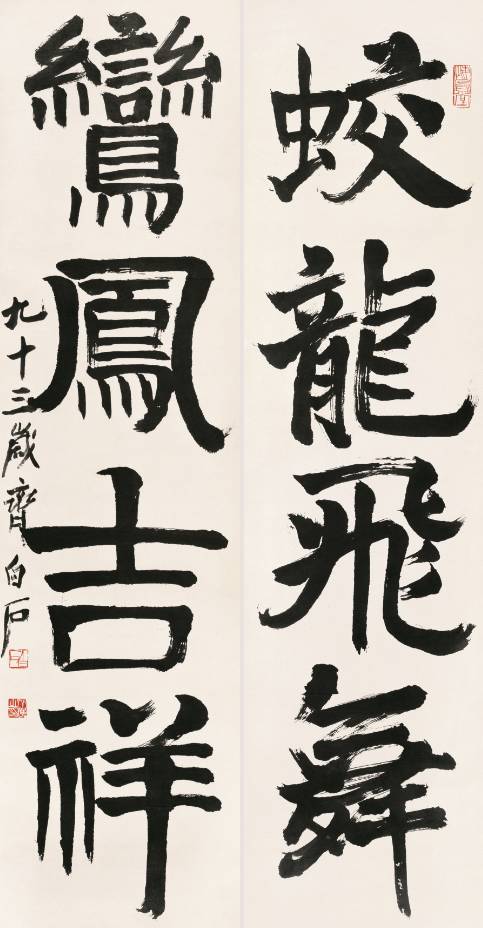 蛟龍飛舞
鸞鳳吉祥
九十三歲齊白石